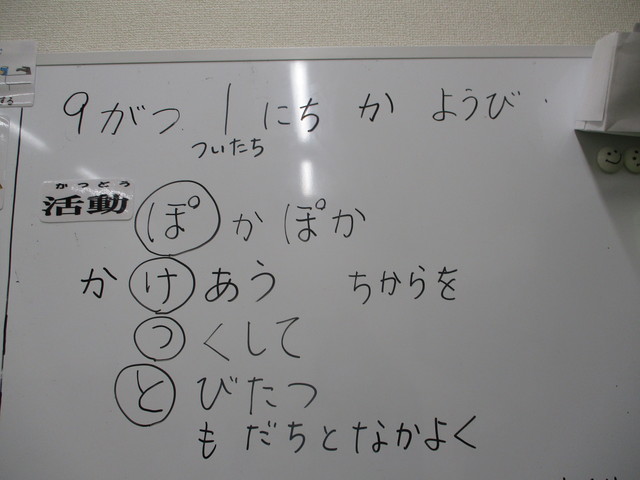 する
9がつ 1にち か ようび
ついたち
かつどう
活動
ぽかぽか
かけあう ちからを
つくして
とびたつ
もだちとなかよく